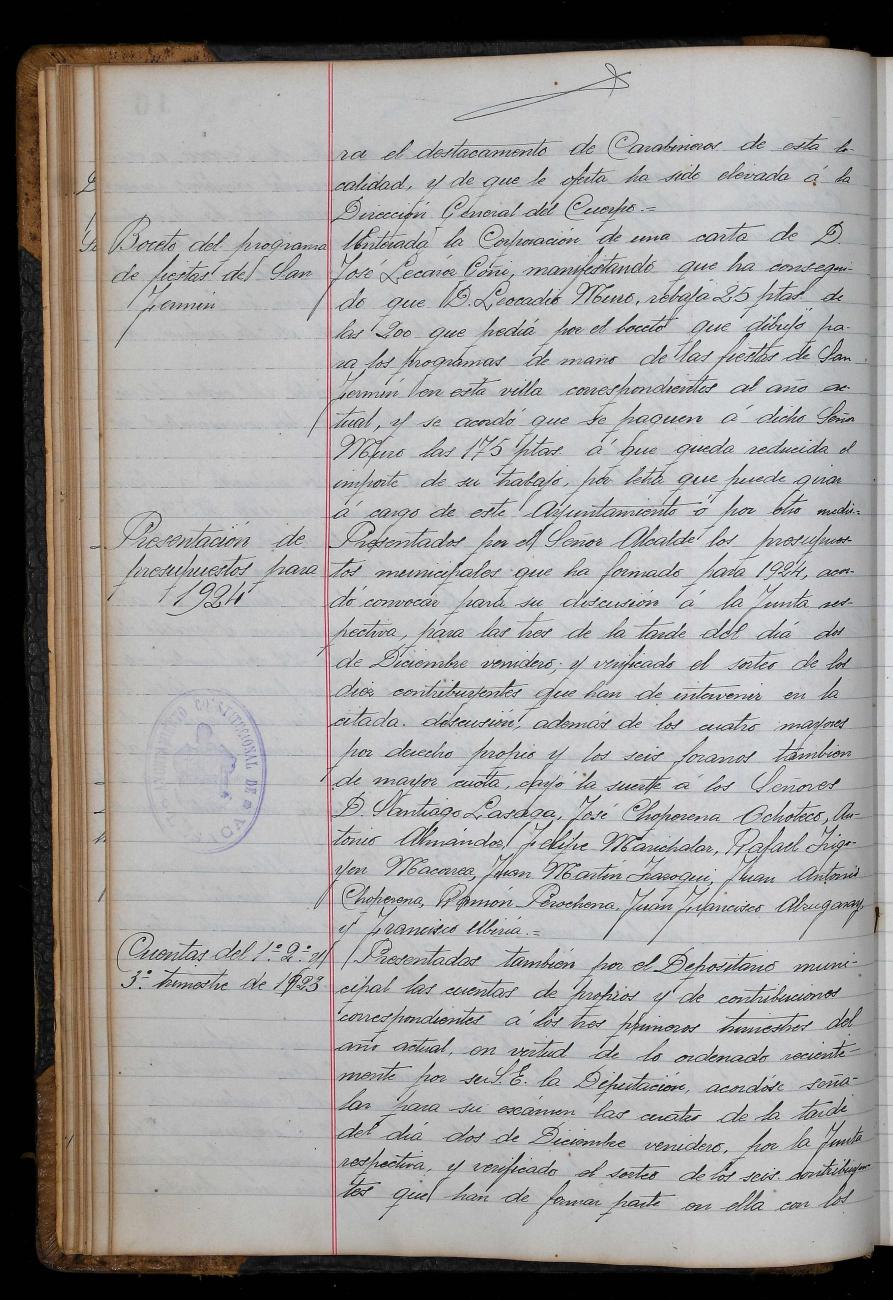 ra el destacamento de Carabineros de esta lo-
calidad, y de que le oferta ha sido elevada á la
Dirección General del Cuerpo.=
Boceto del programa
de fiestas de San
Fermin
Enterada la Corporación de una carta de D.
José Lecároz Goñi, manifestando que ha consegui-
do que D. Leocadio Muro, rebaja 25 ptas de
las 200 que pedia por el boceto que dibujó pa-
ra los programas de mano de las fiestas de San
Fermin en esta villa correspondientes al año ac-
tual, y se acordó que se paguen á dicho Señor
Muro las 175 ptas á que queda reducida el
importe de su trabajo, por letra que puede girar
á cargo de este Ayuntamiento ó por otro medio=
Presentación de
presupuestos para
1924
Presentados por el Señor Alcalde los presupues-
tos municipales que ha formado para 1924, acor-
dó convocar para su discusion á la Junta res-
pectiva, para las tres de la tarde del dia dos
de Diciembre venidero, y verificado el sorteo de los
diez contribuyentes que han de intervenir en la
citada discusion, además de los cuatro mayores
por derecho propio y los seis foranos tambien
de mayor cuota, cayó la suerte á los Señores
D. Santiago Lasaga, José Choperena Ochoteco, An-
tonio Almándoz, Felipe Marichalar, Rafael Irigo-
yen Macorrea, Juan Martín Iraoqui, Juan Antonio
Choperena, Ramón Perochena, Juan Francisco Alzugaray
y Francisco Ubiria.=
AYUNTAMIENTO CONSTITUCIONAL DE
LESACA
Cuentas del 1º 2º y
3º trimestre de 1923
Presentadas también por el Depositario muni-
cipal las cuentas de propios y de contribuciones
correspondientes á los tres primeros trimestres del
año actual, en virtud de lo ordenado reciente-
mente por su S.E. la Diputación, acordóse seña-
lar para su exámen las cuatro de la tarde
del dia dos de Diciembre venidero, por la Junta
respectiva, y verificado el sorteo de los seis contribuyen-
tes que han de formar parte en ella con los